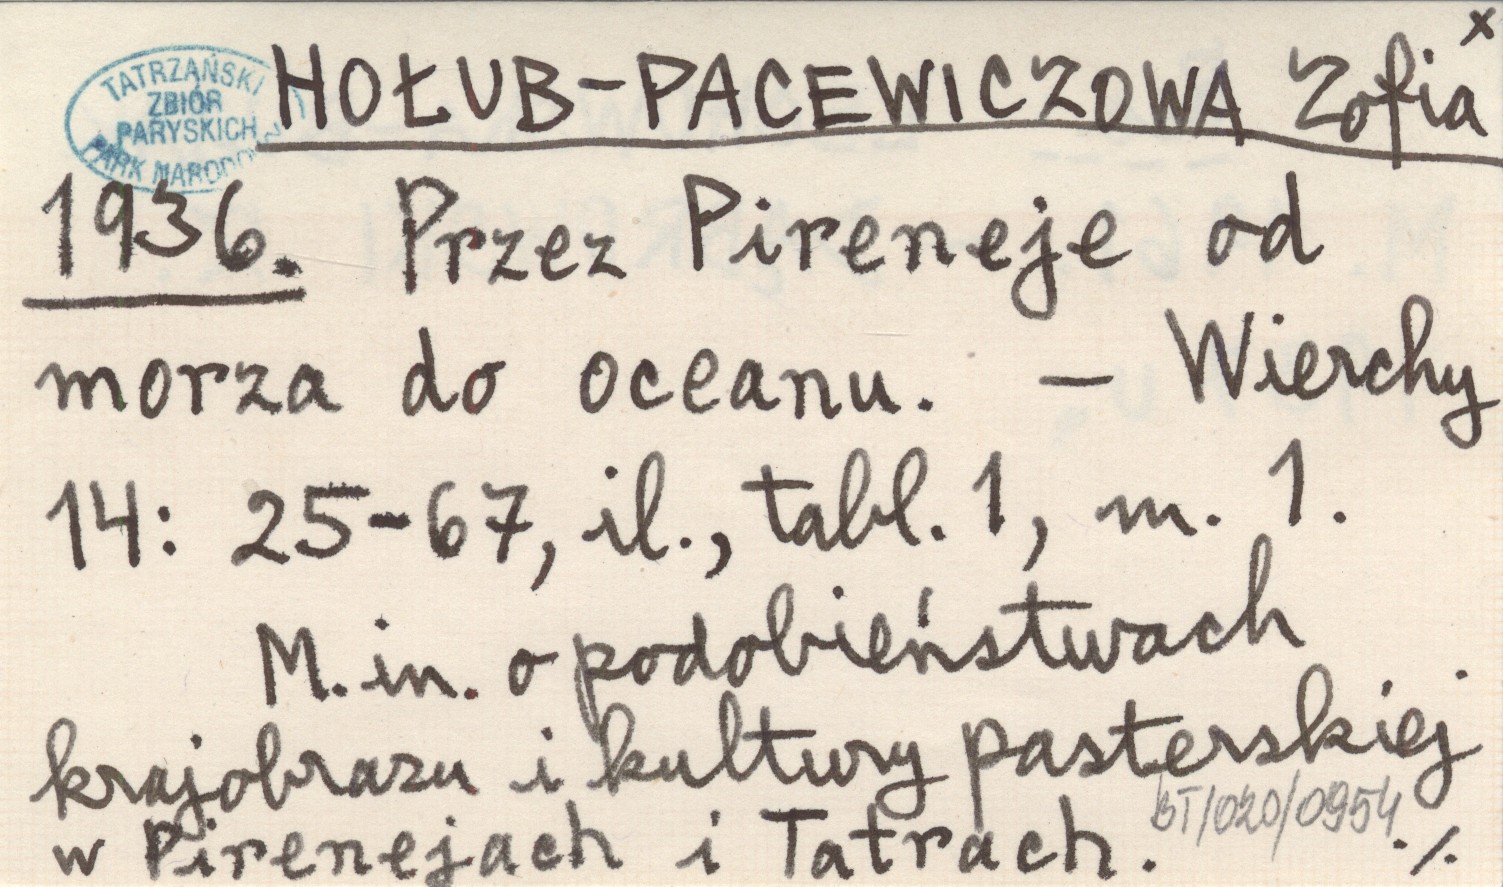 x
TATRZAŃSKI
ZBIÓR
PARYSKICH
PARK NARODO
HOŁUB-PACEWICZOWA Zofia
1936. Przez Pireneje od
morza do oceanu. — Wierchy
14: 25-67, il., tabl. 1, m. 1.
M. in. o podobieństwach
krajobrazu i kultury pasterskiej
w Pirenejach i Tatrach.
BT/020/0954
./.